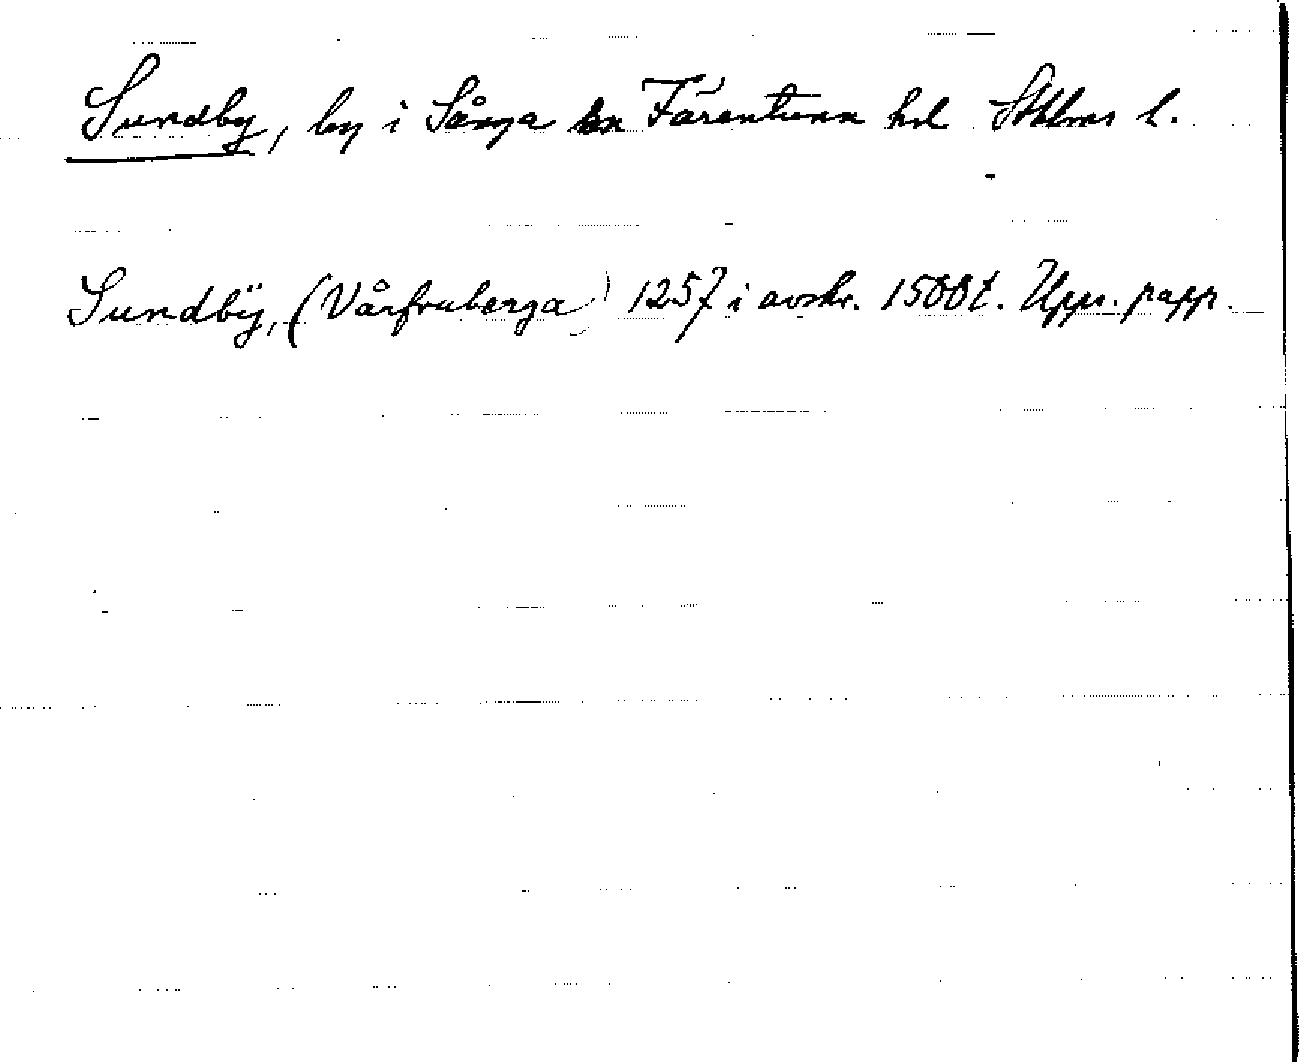 Sundby, by i Sånga sn Färentuna hd Sthlms l.
Sundbÿ, (Vårfruberga) 1257 i avskr. 1500t. Upps. papp.